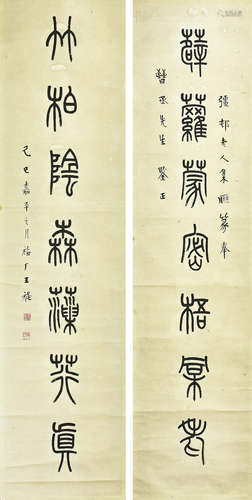 彊邨老人集聯篆奉
薜蘿蒙密梧巢老
晉丞先生 鑒正
竹柏陰森藻荇真
己巳嘉平之月福厂王禔